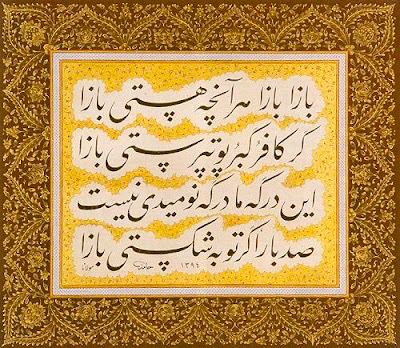 بازا بازا هر آنچه هستی بازا
گر کافر گبر و بت پرستی بازا
این درگه ما درگه نومیدی نیست
صد بار اگر توبه شکستی بازا
مولانا ۱۳۹۴